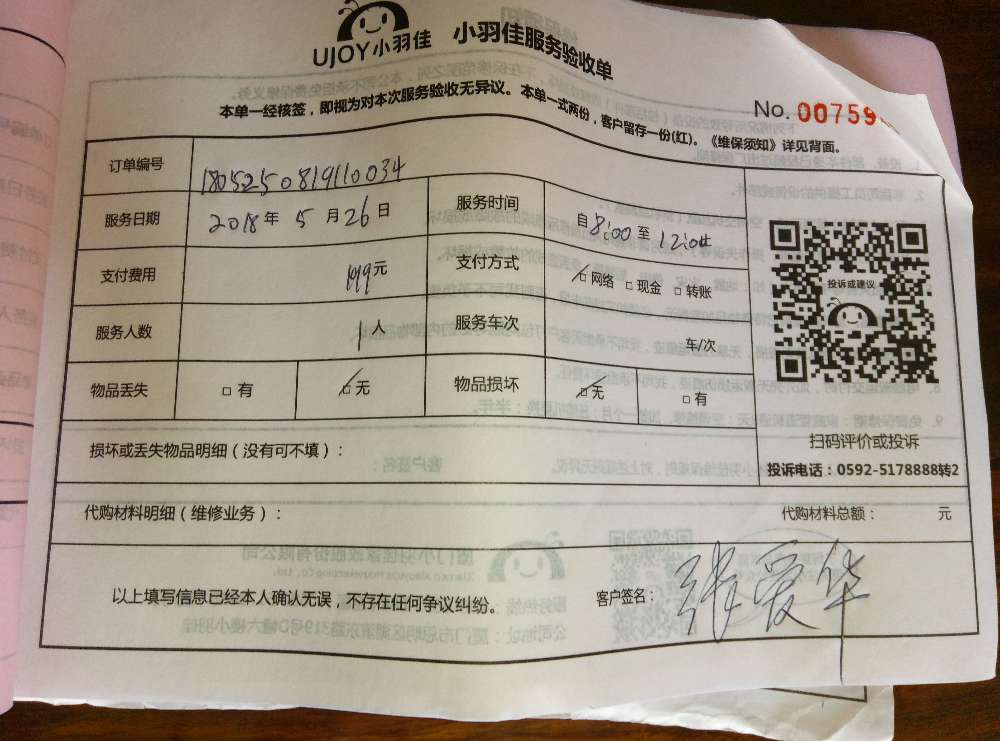 UJOY小羽佳 小羽佳服务验收单
本单一经核签，即视为对本次服务验收无异议。本单一式两份，客户留存一份(红)。《维保须知》详见背面。
No. 00759
订单编号 1805250819110034
服务日期 2018年5月26日 服务时间 自8:00至12:00止
支付费用 199元 支付方式 ☑网络 □现金 □转账
服务人数 1人 服务车次 车/次
物品丢失 □有 ☑无 物品损坏 ☑无 □有
投诉或建议
扫码评价或投诉
投诉电话：0592-5178888转2
损坏或丢失物品明细（没有可不填）：
代购材料明细（维修业务）： 代购材料总额： 元
以上填写信息已经本人确认无误，不存在任何争议纠纷。 客户签名：张爱华